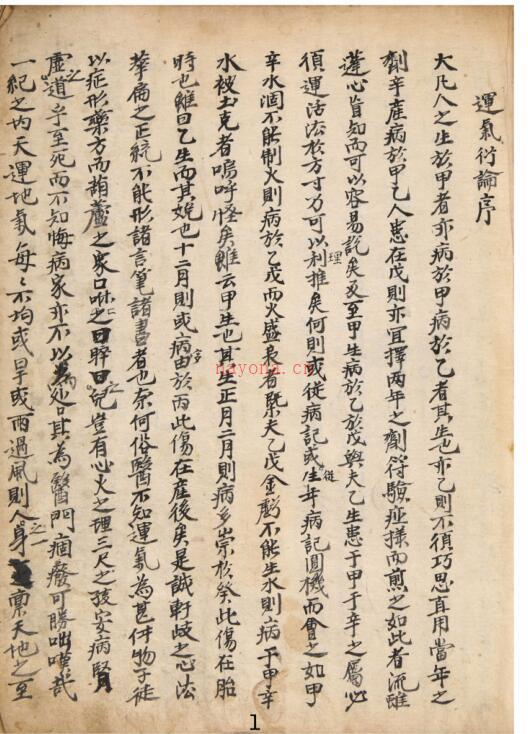 運氣衍論序
大凡人之生於甲者亦病於甲病於乙者其生也亦乙則不須巧思直用當年之
劑辛産病於甲乙人患在戊則亦宜擇两年之劑符驗症樣而煎之如此者流雖
蓬心皆知而可以容易說矣及至甲生病於乙於戊與夫乙生患于甲于辛之屬必
須運活法於方寸方可以利推理矣何則或從病記或從生年病記圓機而會之如甲
辛水涸不能制火則病於乙戊而火盛衰者堅夫乙戊金虧不能生水則病于甲辛
水被土克者嗚呼怪矣雖云甲生也其生正月二月則病多崇於癸此傷在胎
時也雖曰乙生而其娩也十二月則或病由於丙此傷在産後矣是誠軒歧之心法
華扁之正統不能形諸言筆諸書者也奈何俗醫不知運氣為甚件物子徒
以症形藥方而葫蘆之家口啉之曰曰兒豈有心火之理三尺之孩安病腎
虛之道乎至死而不知悔病家亦不以為處其為醫門痼癈可勝咄嗟哉
一紀之內天運地氣每々不均或旱或雨過風則人之一身禀天地之至
nayona.cn
1